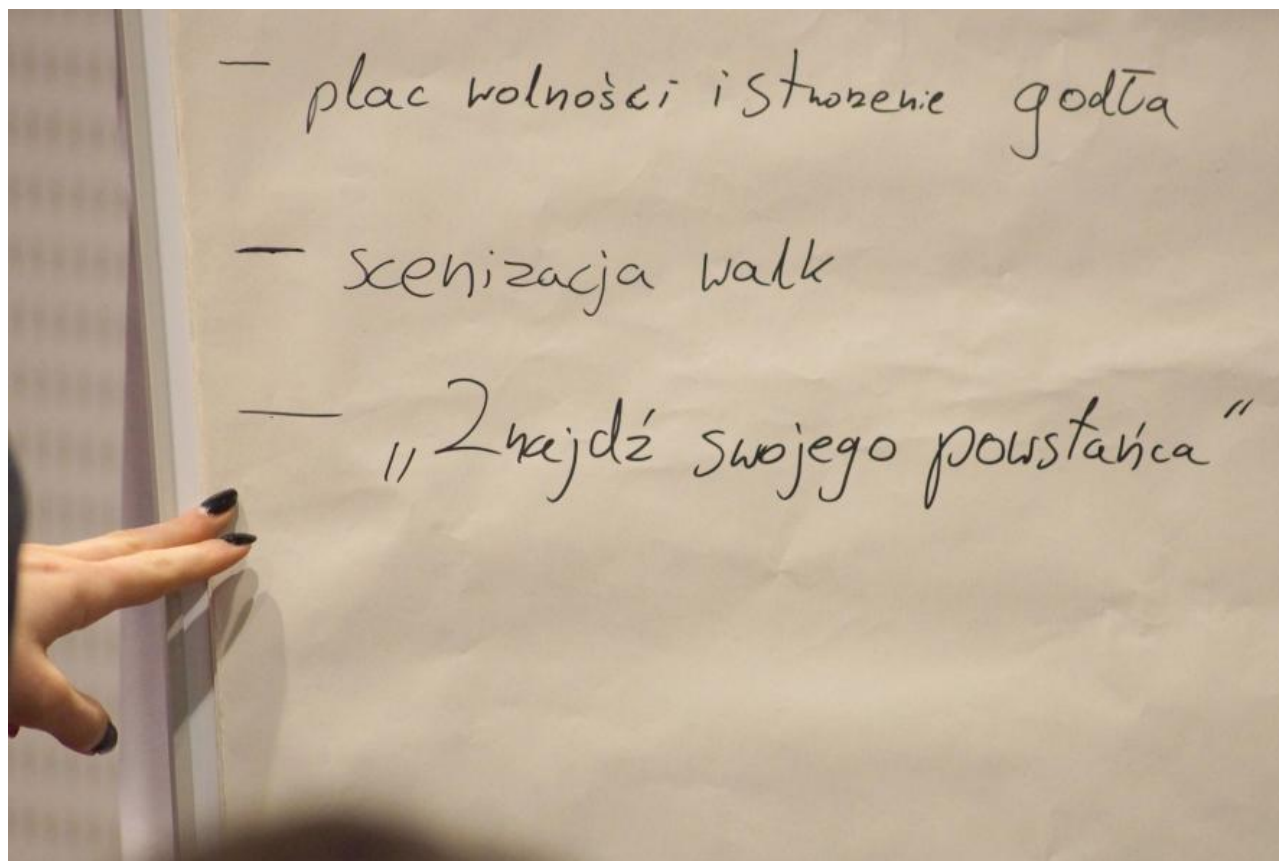 – plac wolności i stworzenie godła
– scenizacja walk
– „Znajdź swojego powstańca”